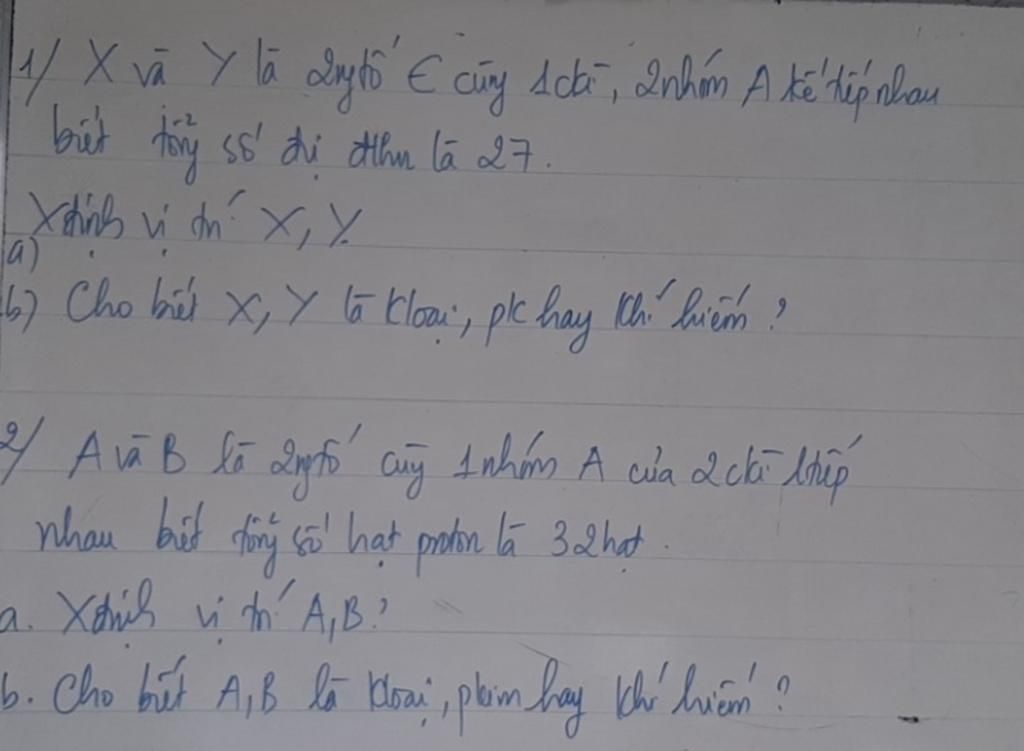 1/ X và Y là 2ngtố ∈ cùng 1ckì, 2nhóm A kế tiếp nhau
biết tổng số đvị đthn là 27.
Xđịnh vị trí X, Y.
a)
b) Cho biết X, Y là kloại, pk hay khí hiếm?
2/ A và B là 2ngtố cùng 1nhóm A của 2ckì ltiếp
nhau biết tổng số hạt proton là 32hạt.
a. Xđịnh vị trí A, B?
b. Cho biết A, B là kloại, pkim hay khí hiếm?